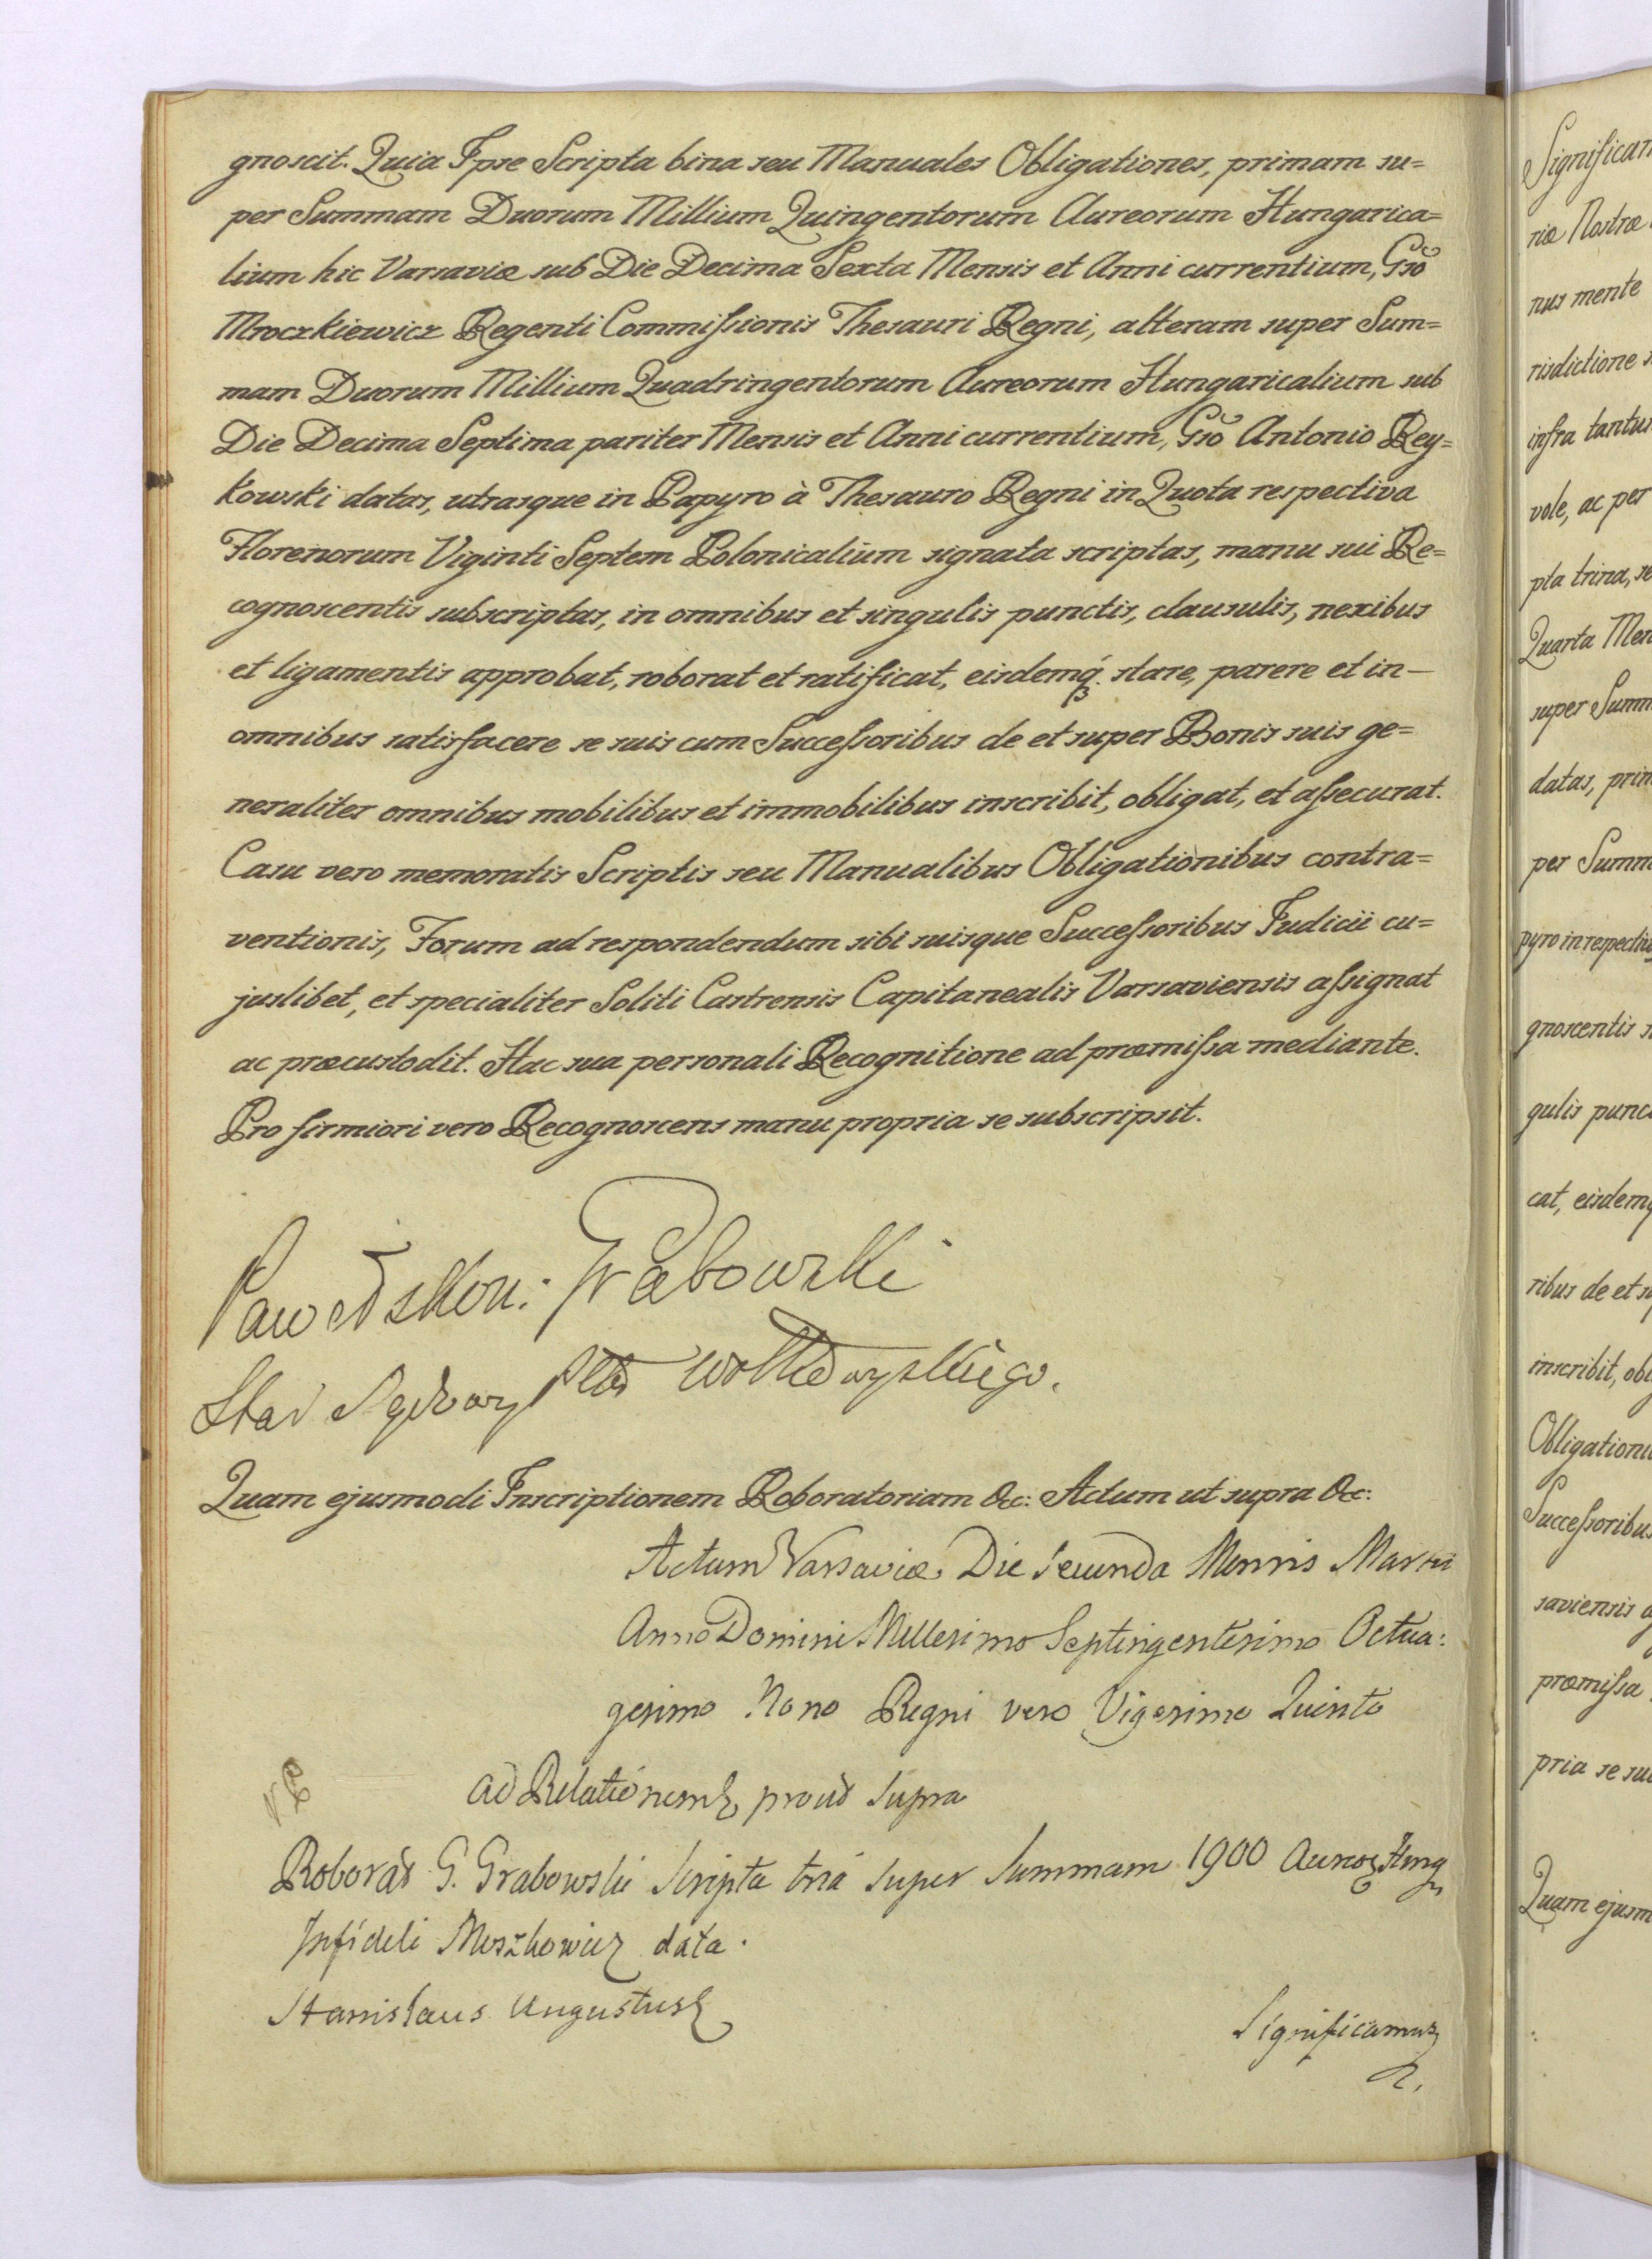 gnoscit. Quia Ipse Scripta bina seu Manuales Obligationes, primam su=
per Summam Duorum Millium Quingentorum Aureorum Hungarica=
lium hic Varsaviæ sub Die Decima Sexta Mensis et Anni currentium, Gso
Mroczkiewicz Regenti Commißionis Thesauri Regni, alteram super Sum=
mam Duorum Millium Quadringentorum Aureorum Hungaricalium sub
Die Decima Septima pariter Mensis et Anni currentium, Gso Antonio Rey=
kowski datas, utrasque in Papyro à Thesauro Regni in Quota respectiva
Florenorum Viginti Septem Polonicalium signata scriptas, manu sui Re=
cognoscentis subscriptas, in omnibus et singulis punctis, clausulis, nexibus
et ligamentis approbat, roborat et ratificat, eisdemq́ꝫ stare, parere et in—
omnibus satisfacere se suis cum Succeßoribus de et super Bonis suis ge=
neraliter omnibus mobilibus et immobilibus inscribit, obligat, et aßecurat.
Casu vero memoratis Scriptis seu Manualibus Obligationibus contra=
ventionis, Forum ad respondendum sibi suisque Succeßoribus Judicii cu=
juslibet, et specialiter Soliti Castrensis Capitanealis Varsaviensis aßignat
ac præcustodit. Hac sua personali Recognitione ad præmißa mediante.
Pro firmiori vero Recognoscens manu propria se subscripsit.
Grabowski
Wołkowyskiego.
Quam ejusmodi Inscriptionem Roboratoriam &c: Actum ut supra &c:
Actum Varsaviæ Die Secunda Mensis Martii
Anno Domini Millesimo Septingentesimo Octua:
gesimo Nono Regni vero Vigesimo Quinto
ad Relationem prout supra
Roborat G. Grabowski Scripta tria super Summam 1900 Aureor Hung
Infideli Moszkowicz data.
Stanislaus Augustus
Significamus
Significam
riæ Nostræ
nus mente
risdictione
infra tantu
vole, ac per
pta trina, se
Quarta Men
super Summ
datas, prim
per Summ
pyro in respectiv
gnoscentis
gulis punc
cat, eisdemq
ribus de et su
inscribit, obl
Obligationi
Succeßoribu
saviensis
præmißa
pria se su
Quam ejusm